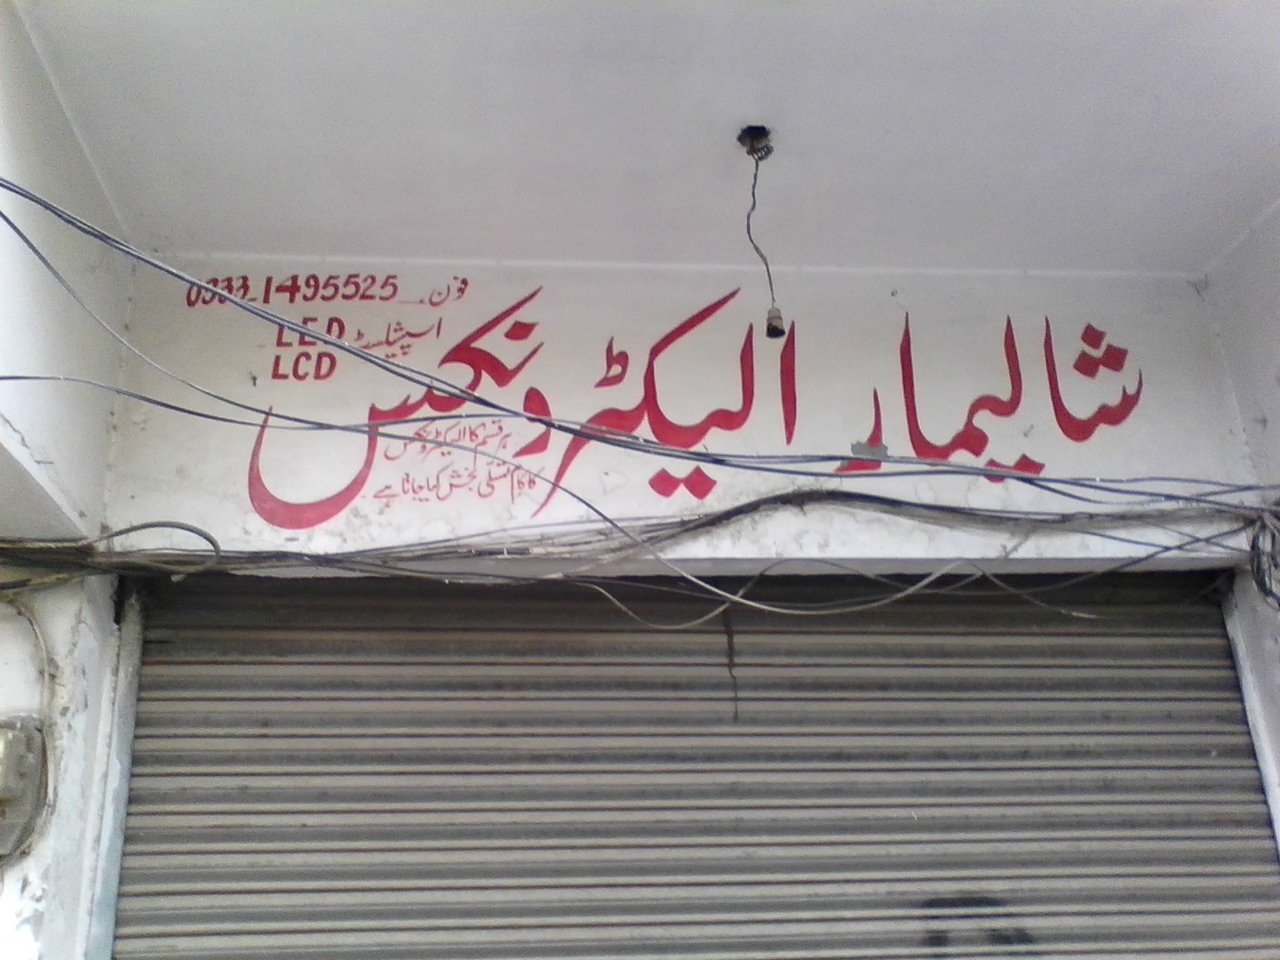 شالیمار الیکٹرونکس
فون۔ 0333-1495525
LED اسپیشلسٹ
LCD
ہر قسم کا الیکٹرونکس
کا کام تسلی بخش کیا جاتا ہے